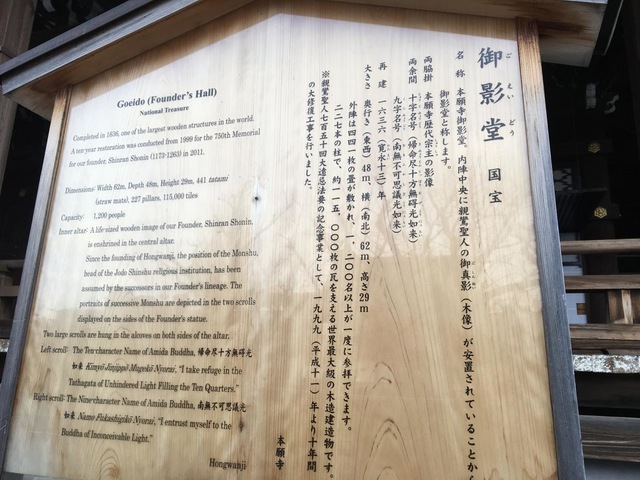 Goeido (Founder's Hall)
National Treasure
Completed in 1636, one of the largest wooden structures in the world.
A ten-year restoration was conducted from 1999 for the 750th Memorial
for our founder, Shinran Shonin (1173-1263) in 2011.
Dimensions: Width 62m, Depth 48m, Height 29m, 441 tatami
(straw mats), 227 pillars, 115,000 tiles
Capacity: 1,200 people
Inner altar: A life-sized wooden image of our Founder, Shinran Shonin,
is enshrined in the central altar.
Since the founding of Hongwanji, the position of the Monshu,
head of the Jodo Shinshu religious institution, has been
assumed by the successors in our Founder's lineage. The
portraits of successive Monshu are depicted in the two scrolls
displayed on the sides of the Founder's statue.
Two large scrolls are hung in the alcoves on both sides of the altar.
Left scroll: The Ten-character Name of Amida Buddha, 帰命尽十方無碍光
如来 Kimyō-Jinjippō-Mugekō-Nyorai, "I take refuge in the
Tathagata of Unhindered Light Filling the Ten Quarters."
Right scroll: The Nine-character Name of Amida Buddha, 南無不可思議光
如来 Namo-Fukashigikō-Nyorai, "I entrust myself to the
Buddha of Inconceivable Light."
Hongwanji
御影堂 国宝
ご えい どう
名称 本願寺御影堂。内陣中央に親鸞聖人の御真影(木像)が安置されていることから
御影堂と称します。
両脇掛 本願寺歴代宗主の影像
両余間 十字名号(帰命尽十方無碍光如来)
九字名号(南無不可思議光如来)
再建 一六三六(寛永十三)年
大きさ 奥行き(東西)48m、横(南北)62m、高さ29m
外陣は四四一枚の畳が敷かれ、一、二〇〇名以上が一度に参拝できます。
二二七本の柱で、約一一五、〇〇〇枚の瓦を支える世界最大級の木造建造物です。
※親鸞聖人七百五十回大遠忌法要の記念事業として、一九九九(平成十一)年より十年間
の大修復工事を行いました。
本願寺